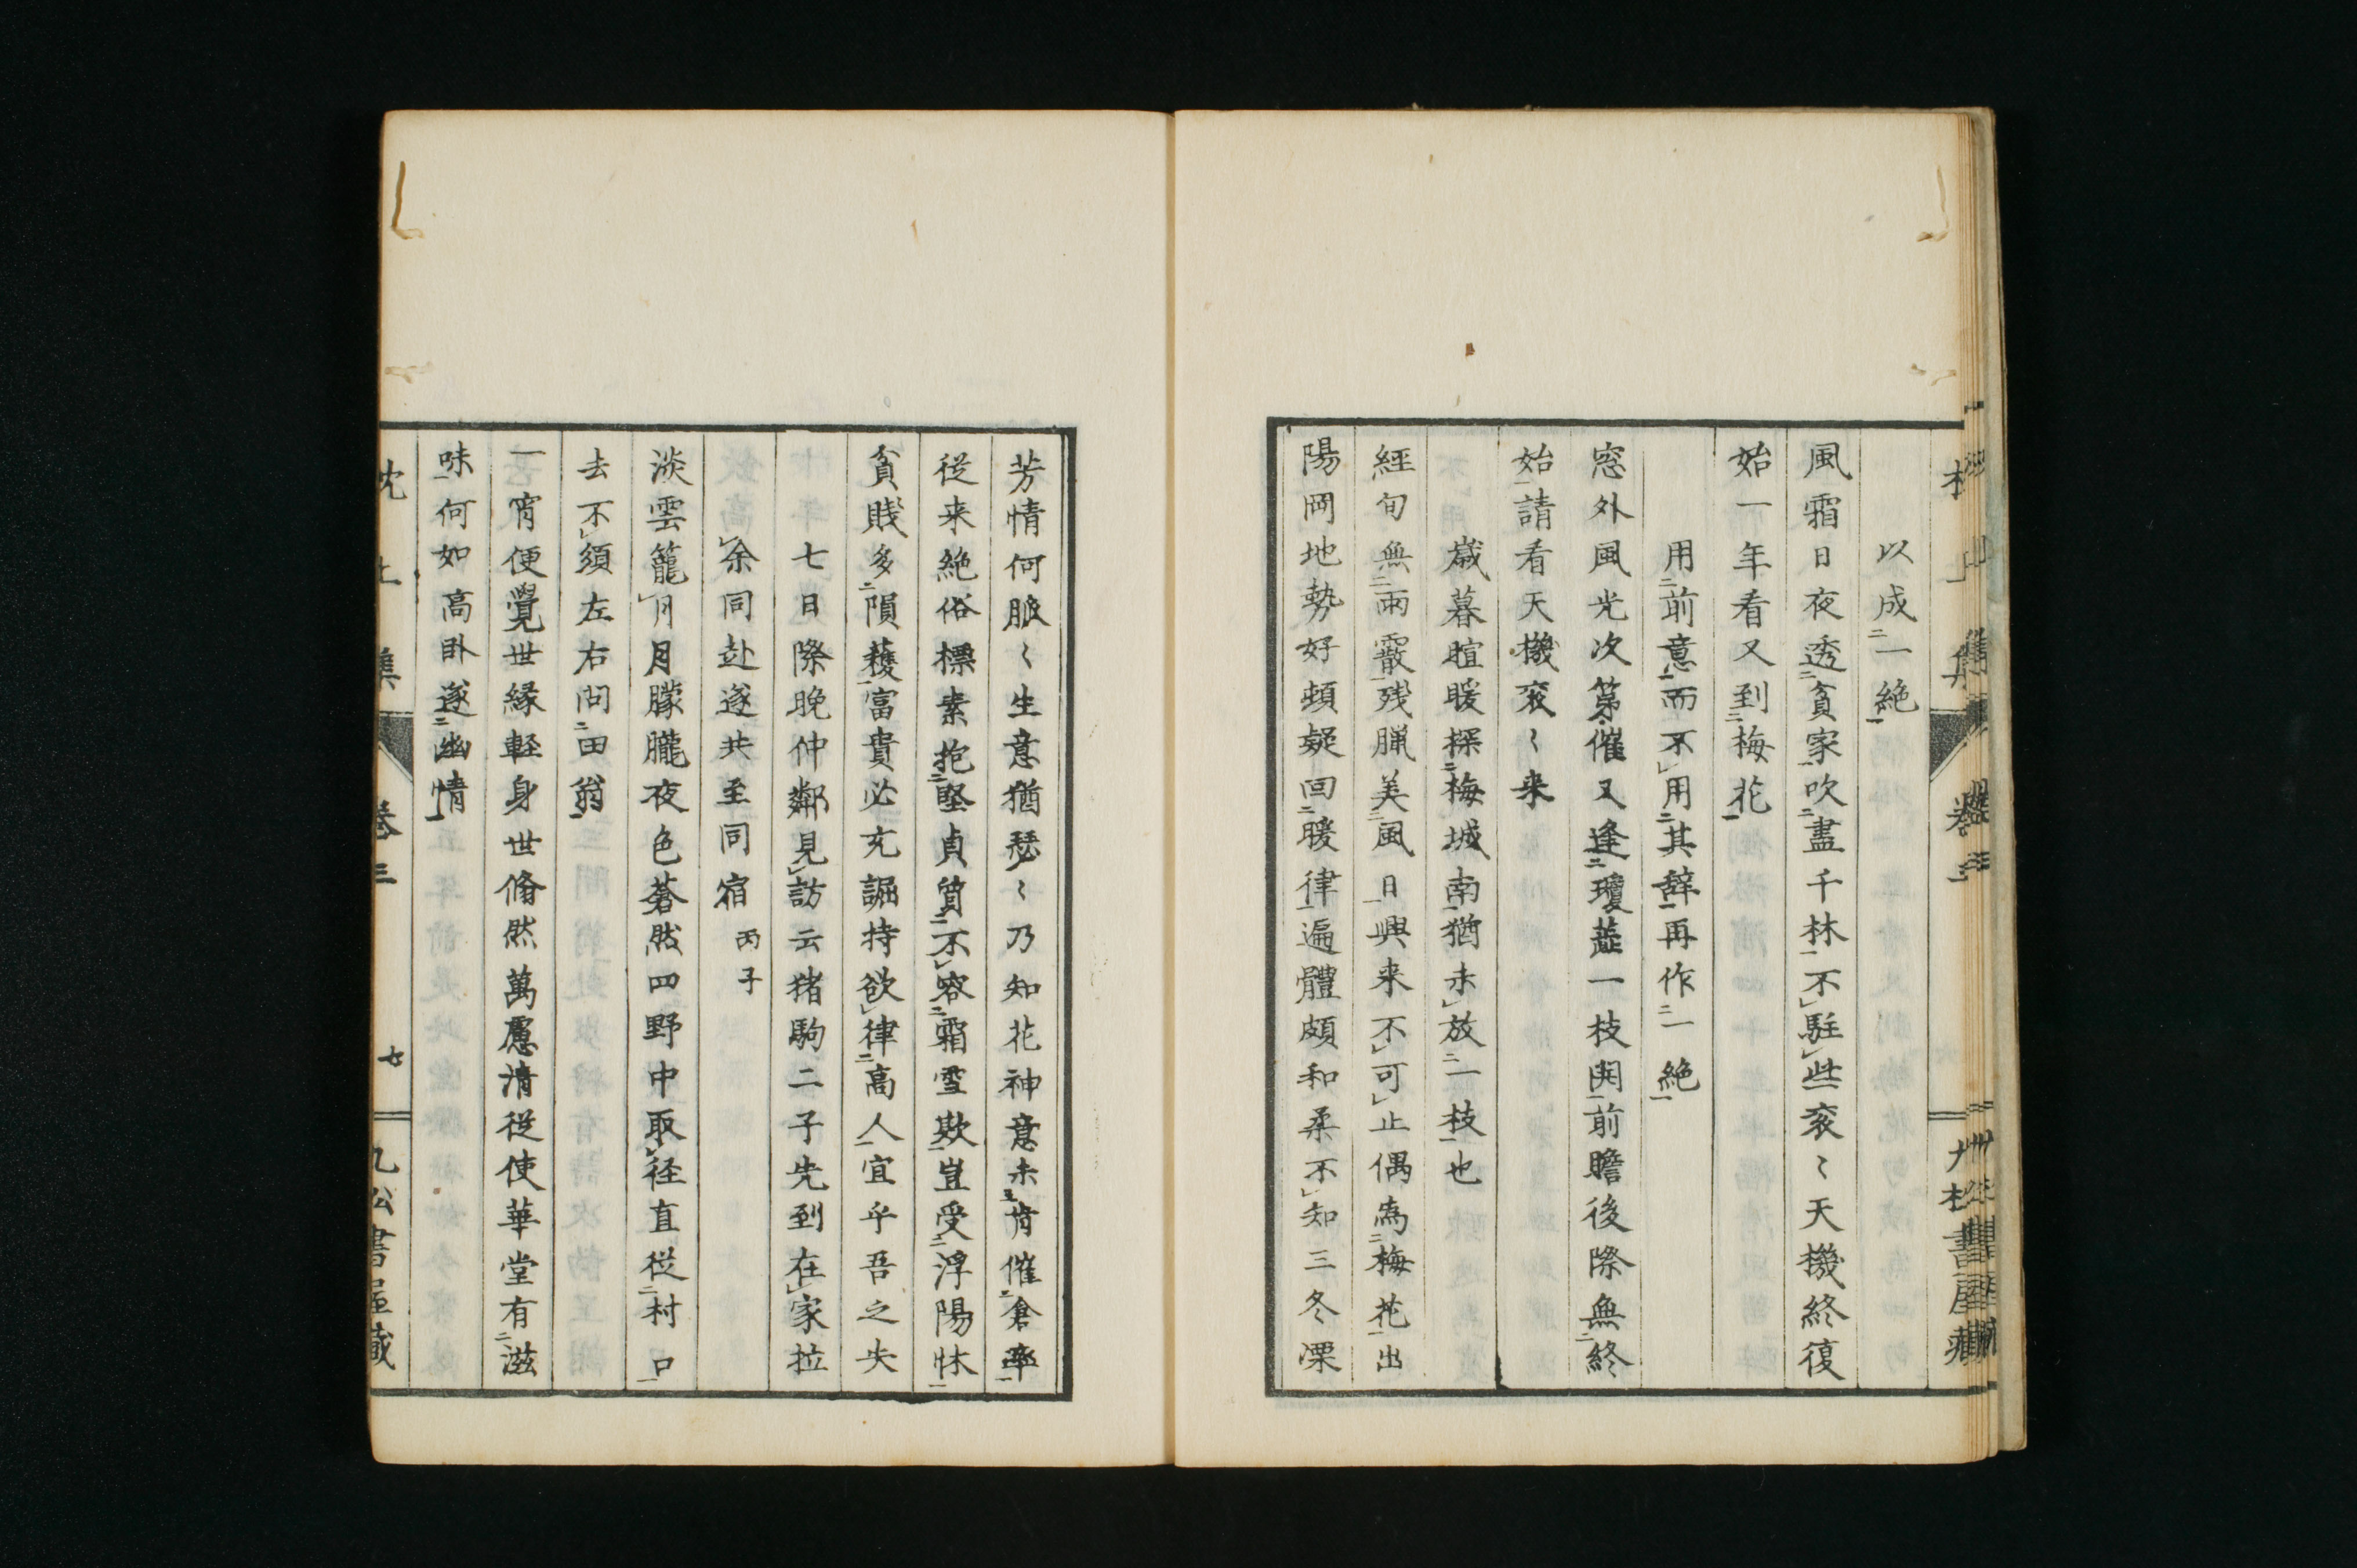 以成二一絶一
風霜日夜透二貧家一吹二盡千林一不レ駐レ些衮〻天機終復
始一年看又到二梅花一
用二前意一而不レ用二其辞一再作二一絶一
窓外風光次第催又逢二瓊蕋一一枝開前瞻後際無二終
始一請看天機衮〻来
歳暮暄暖探二梅城南一猶未レ放二一枝一也
経旬無二雨霰一残臘美二風日一興来不レ可レ止偶為二梅花一出
陽岡地勢好頓疑回二暖律一遍體頗和柔不レ知三冬凓
芳情何脉〻生意猶瑟〻乃知花神意未三肯催二倉卒一
従来絶俗標素抱二堅貞質一不レ容二霜雪欺一豈受二浮陽怵一
貧賎多二隕穫一富貴必充詘持欲レ律二高人一宜乎吾之失
七日際晩仲鄰見レ訪云猪駒二子先到在レ家拉
レ余同赴遂共至同宿 丙子
淡雲籠レ月月朦朧夜色蒼然四野中取レ径直従二村口一
去不レ須左右問二田翁一
一宵便覺世縁軽身世翛然萬慮清従使華堂有二滋
味一何如高卧遂二幽情一
卷三
七
書屋藏